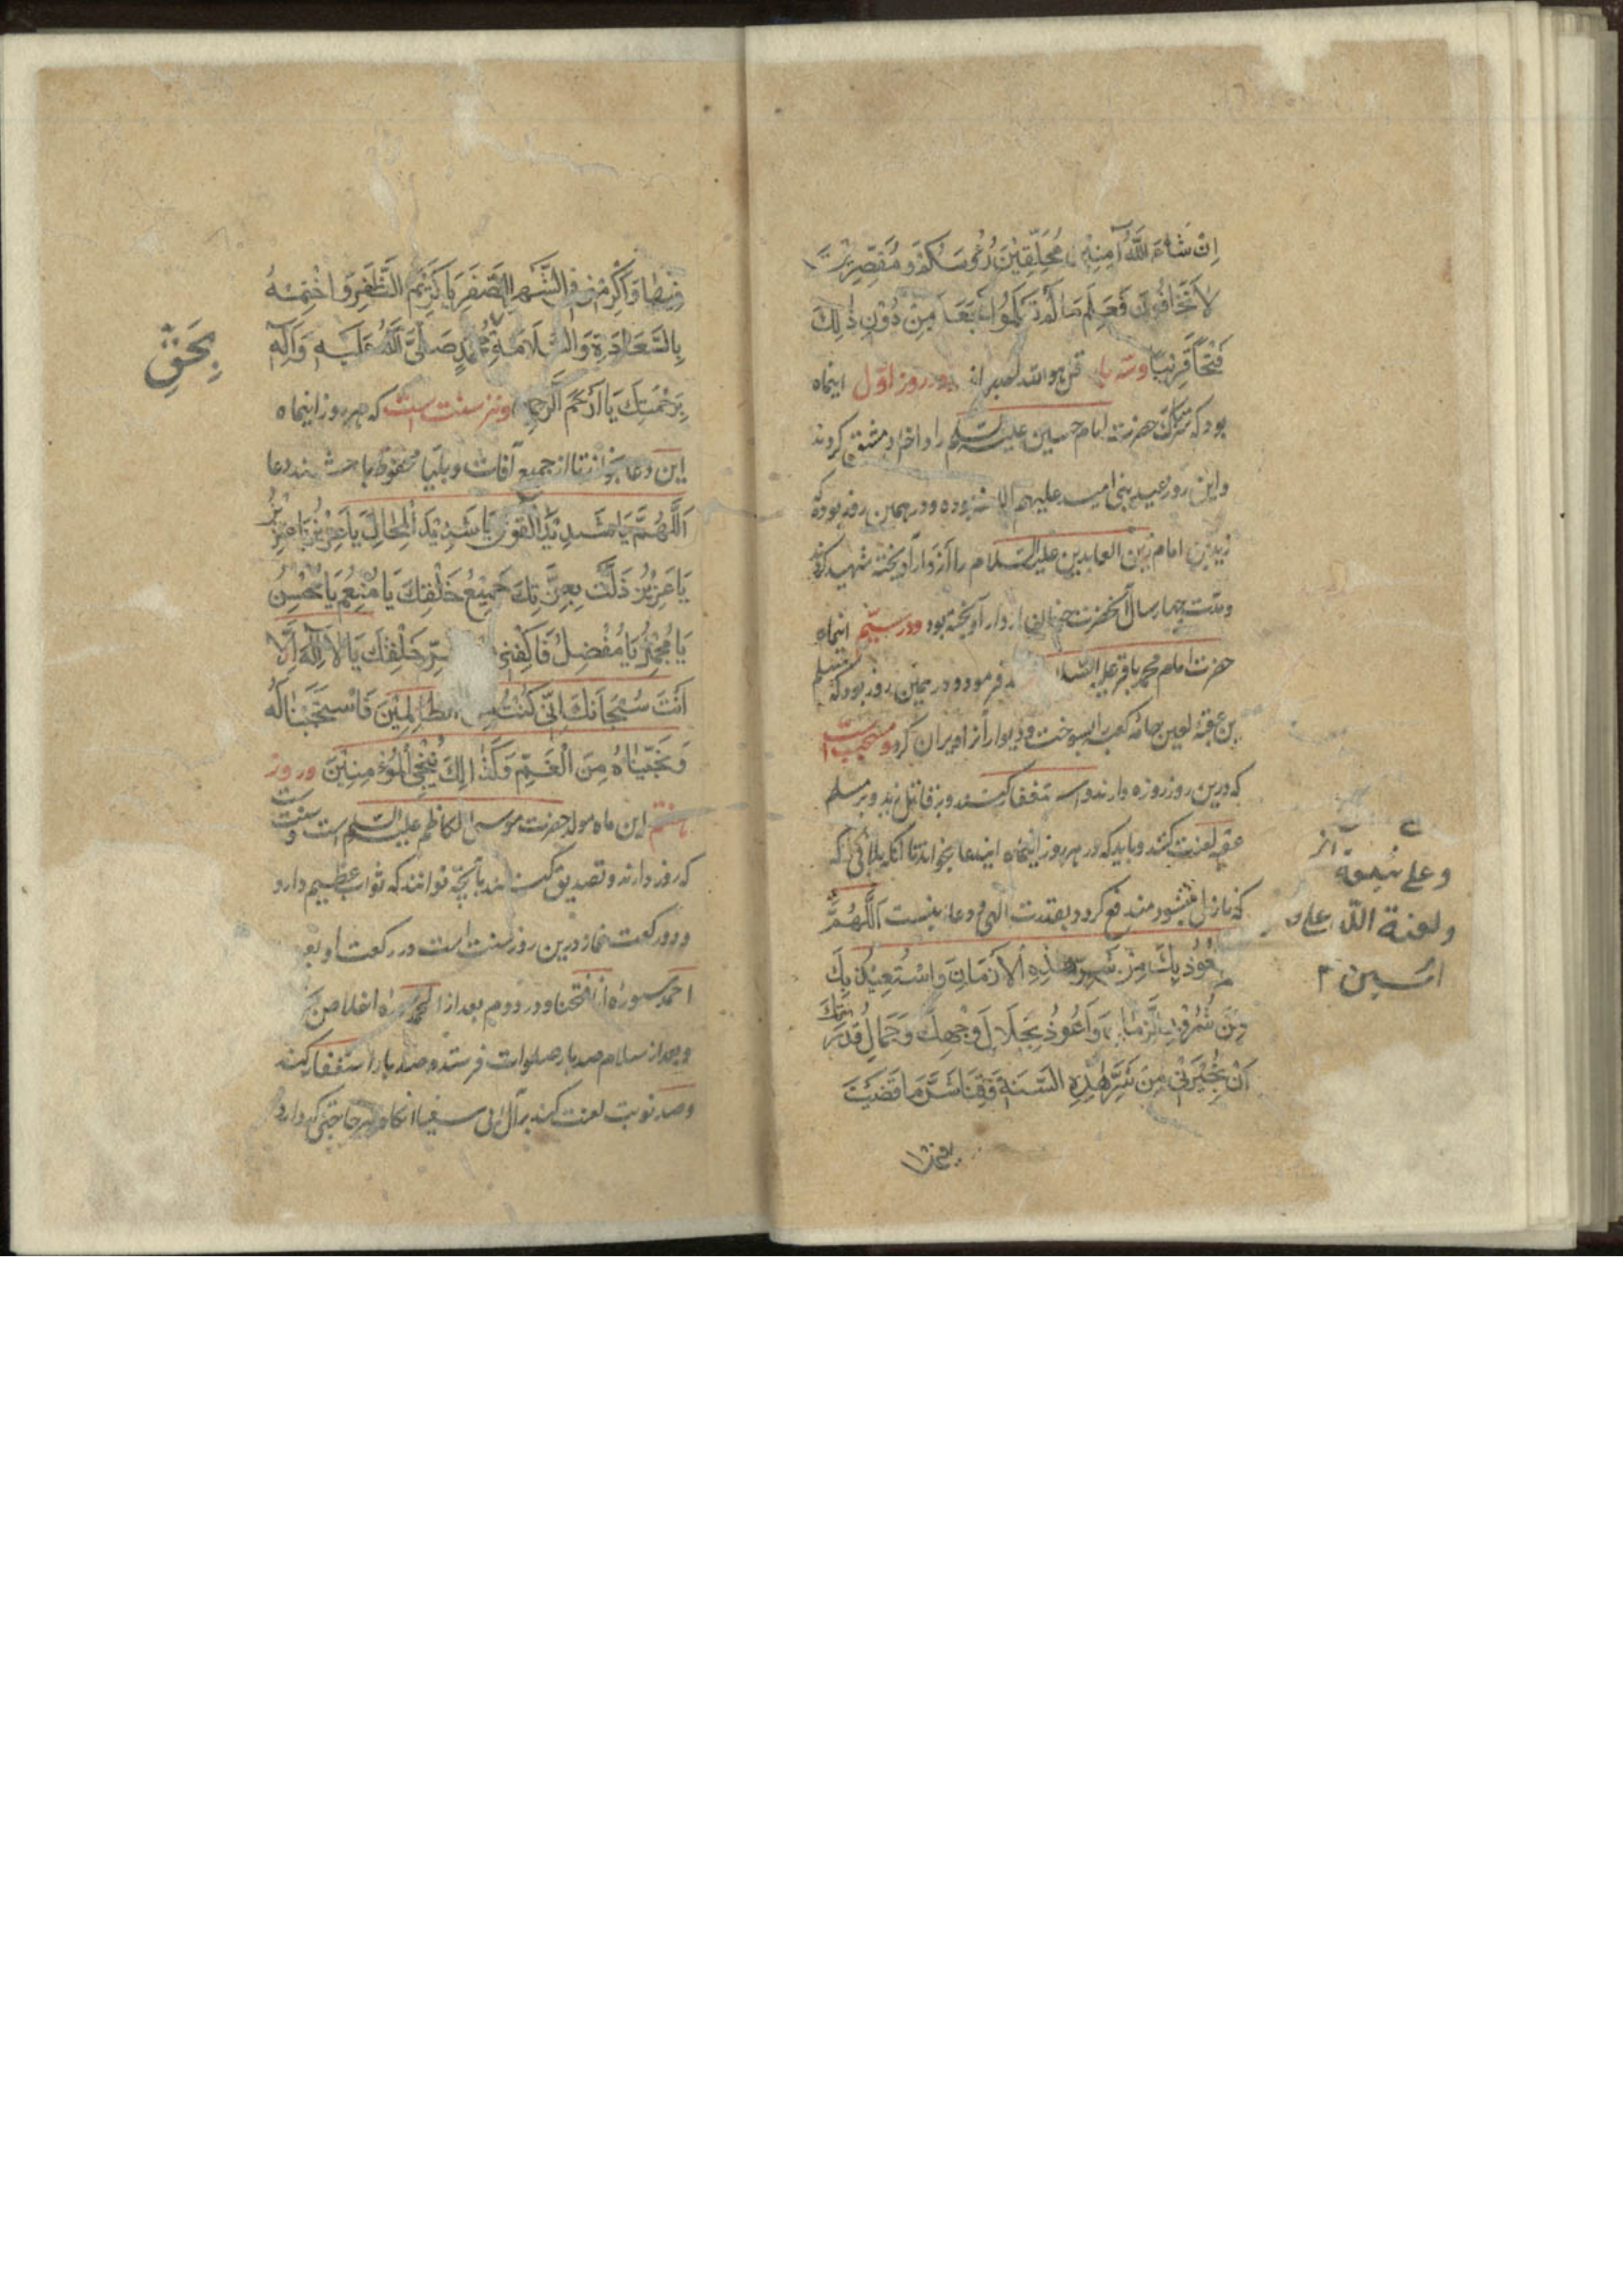 اِنْ شَاءَ اللّٰهُ آمِنِيْنَ مُحَلِّقِيْنَ رُءُوسَكُمْ وَ مُقَصِّرِيْنَ
لَا تَخَافُوْنَ فَعَلِمَ مَا لَمْ تَعْلَمُوا فَجَعَلَ مِنْ دُوْنِ ذٰلِكَ
فَتْحًا قَرِيْبًا وسه بار قل هو الله در روز اوّل اینماه
بود که سر مبارک حضرت امام حسین علیه السلم را داخل دمشق کردند
واین روز عید بنی امیه علیهم بوده و در همین روز بوده که
زید بن امام زین العابدین علیه السلام را از دار آویخته شهید کردند
ومدت چهار سال آنحضرت از دار آویخته بود ودر سیّم اینماه
حضرت امام محمد باقر علیه السلم فرمود و در همین روز بود که مسلم
بن عقبهٔ لعین جامه کعبه را بسوخت و دیوار از او ویران کرد و مستحب است
که درین روز روزه دارند و استغفار کنند و بر قاتل زید و بر مسلم
عقبه لعنت کنند و باید که در هر روز اینماه ایندعا بخواند تا آنکه بلائی که
که نازل میشود مندفع گردد بقدرت الهی و دعا اینست اَللّٰهُمَّ
اَعُوْذُ بِكَ مِنْ شَرِّ هٰذِهِ الْاَزْمَانِ وَاَسْتَعِيْذُ بِكَ
مِنْ شُرُوْرِ الزَّمَانِ وَاَعُوْذُ بِجَلَالِ وَجْهِكَ وَجَمَالِ قُدْرَتِكَ
اَنْ تُجِيْرَنِيْ مِنْ شَرِّ هٰذِهِ السَّنَةِ فَقِنَا شَرَّ مَا قَضَيْتَ
وعلی شیعة
ولعنة الله علی
بِحَقِّ
فِيْهَا وَاَكْرِمْنِيْ فِي الشَّهْرِ الصَّفَرِ يَا كَرِيْمَ الظَّفَرِ وَاخْتِمْهُ
بِالسَّعَادَةِ وَالسَّلَامَةِ مُحَمَّدٍ صَلَّى اللّٰهُ عَلَيْهِ وَآلِهِ
بِرَحْمَتِكَ يَا اَرْحَمَ الرَّاحِمِيْنَ ونیز سنت است که هر روز اینماه
این دعا بخوانند تا از جمیع آفات و بلیات محفوظ باشند دعا
اَللّٰهُمَّ يَا شَدِيْدَ الْقُوٰى يَا شَدِيْدَ الْمِحَالِ يَا عَزِيْزُ يَا عَزِيْزُ
يَا عَزِيْزُ ذَلَّتْ بِعِزَّتِكَ جَمِيْعُ خَلْقِكَ يَا مُنْعِمُ يَا مُحْسِنُ
يَا مُجْمِلُ يَا مُفْضِلُ فَاكْفِنِيْ شَرَّ خَلْقِكَ يَا لَا اِلٰهَ اِلَّا
اَنْتَ سُبْحَانَكَ اِنِّيْ كُنْتُ مِنَ الظَّالِمِيْنَ فَاسْتَجَبْنَا لَهُ
وَنَجَّيْنَاهُ مِنَ الْغَمِّ وَكَذٰلِكَ نُنْجِي الْمُؤْمِنِيْنَ و روز
هفتم این ماه مولد حضرت موسی الکاظم علیه السلم است و سنت است
که روزه دارند و تصدیق کنند بآنچه توانند که ثواب عظیم دارد
و دو رکعت نماز درین روز سنت است در رکعت اول بعد
الحمد سوره انا فتحنا و در دوم بعد از الحمد سوره اخلاص
و بعد از سلام صد بار صلوات فرستد و صد بار استغفار کند
و صد نوبت لعنت کند بر آل ابی سفیان آنگاه هر حاجتی که دارد